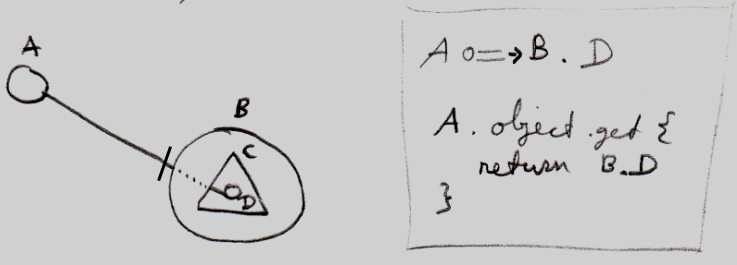 A
B
C
D
A o=→ B . D
A . object . get {
return B.D
}